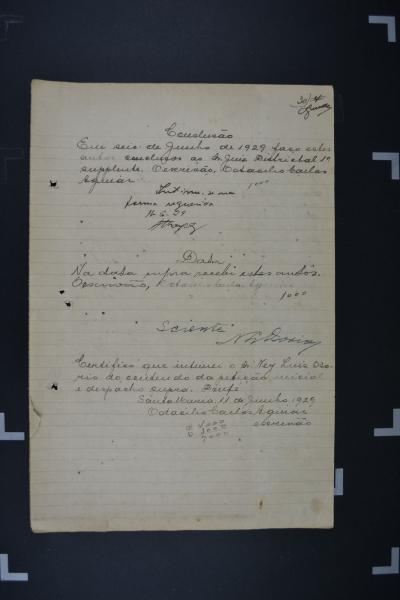 Conclusão
Em seis de Junho de 1929 faço estes
autos conclusos ao Sr. Juiz Districtal 1º
supplente. O escrivão, Octacilio Carlos
Aguiar
1000
forma requerida
Data
Na data supra recebi estes autos.
O escrivão, Octacilio Carlos Aguiar
1000
Sciente
Certifico que intimei o Sr. Ney Luiz Oso-
rio do conteudo da petição inicial
e despacho supra. Dou fé
Santa Maria, 11 de Junho, 1929
Octacilio Carlos Aguiar
escrivão